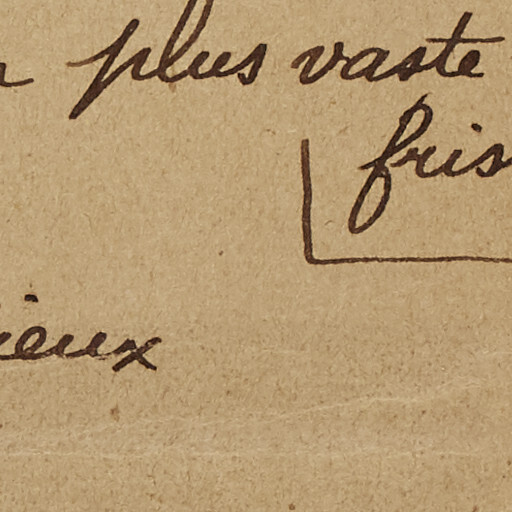 plus vaste
fris
ieux